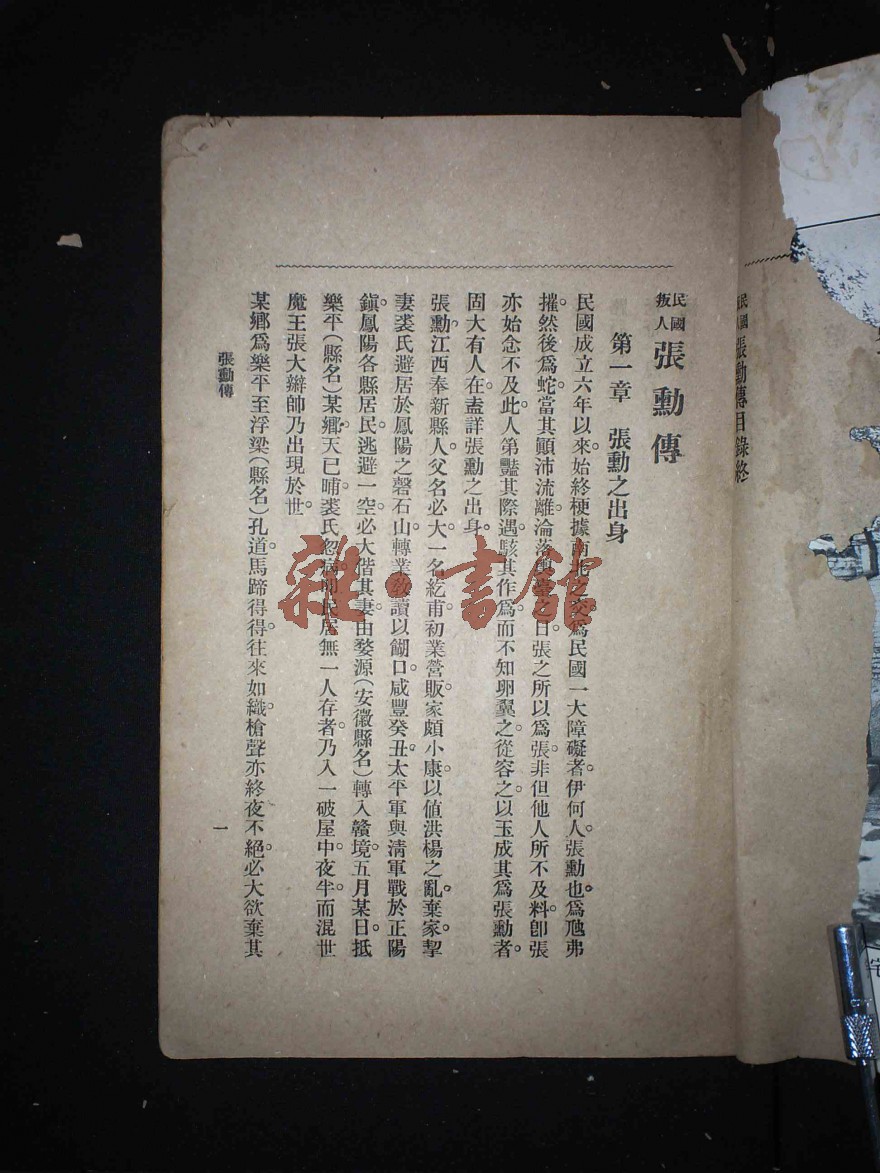 民國叛人 張勳傳
第一章 張勳之出身
民國成立六年以來。始終梗據南北之交。爲民國一大障礙者。伊何人。張勳也。爲虺弗
摧。然後爲蛇。當其顚沛流離。淪落之日。張之所以爲張。非但他人所不及料。卽張
亦始念不及此。人第豔其際遇。駭其作爲。而不知卵翼之。從容之。以玉成其爲張勳者。
固大有人在。盍詳張勳之出身。
張勳。江西奉新縣人。父名必大。一名紇甫。初業營販。家頗小康。以値洪楊之亂。棄家挈
妻裘氏避居於鳳陽之磬石山。轉業敎讀以餬口。咸豐癸丑。太平軍與淸軍戰於正陽
鎭。鳳陽各縣居民。逃避一空。必大偕其妻。由婺源（安徽縣名）轉入贛境。五月某日。抵
樂平（縣名）某鄕。天已晡。裘氏忽病。民居無一人存者。乃入一破屋中。夜半。而混世
魔王張大辮帥乃出現於世。
某鄕爲樂平至浮梁（縣名）孔道。馬蹄得得。往來如織。槍聲亦終夜不絕。必大欲棄其
張勳傳
一
民國
張勳傳目錄終
雜·書館